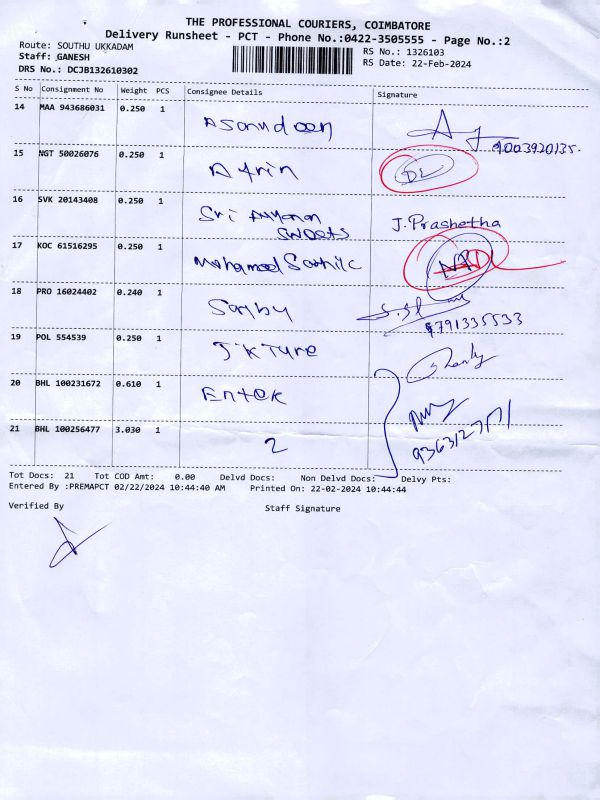 THE PROFESSIONAL COURIERS, COIMBATORE
Delivery Runsheet - PCT - Phone No.:0422-3505555 - Page No.:2
Route: SOUTHU UKKADAM
RS No.: 1326103
Staff: GANESH
RS Date: 22-Feb-2024
DRS No.: DCJB132610302
S No Consignment No Weight PCS Consignee Details Signature
14 MAA 943686031 0.250 1
9003920135.
15 NGT 50026076 0.250 1 Afrin
DL
16 SVK 20143408 0.250 1 Sri Ayyanan
sweets J. Prashetha
17 KOC 61516295 0.250 1 Mohamed
18 PRO 16024402 0.240 1
9791335533
19 POL 554539 0.250 1 J K Tyre
20 BHL 100231672 0.610 1 Entek
21 BHL 100256477 3.030 1 2
Tot Docs: 21 Tot COD Amt: 0.00 Delvd Docs: Non Delvd Docs: Delvy Pts:
Entered By :PREMAPCT 02/22/2024 10:44:40 AM Printed On: 22-02-2024 10:44:44
Verified By Staff Signature